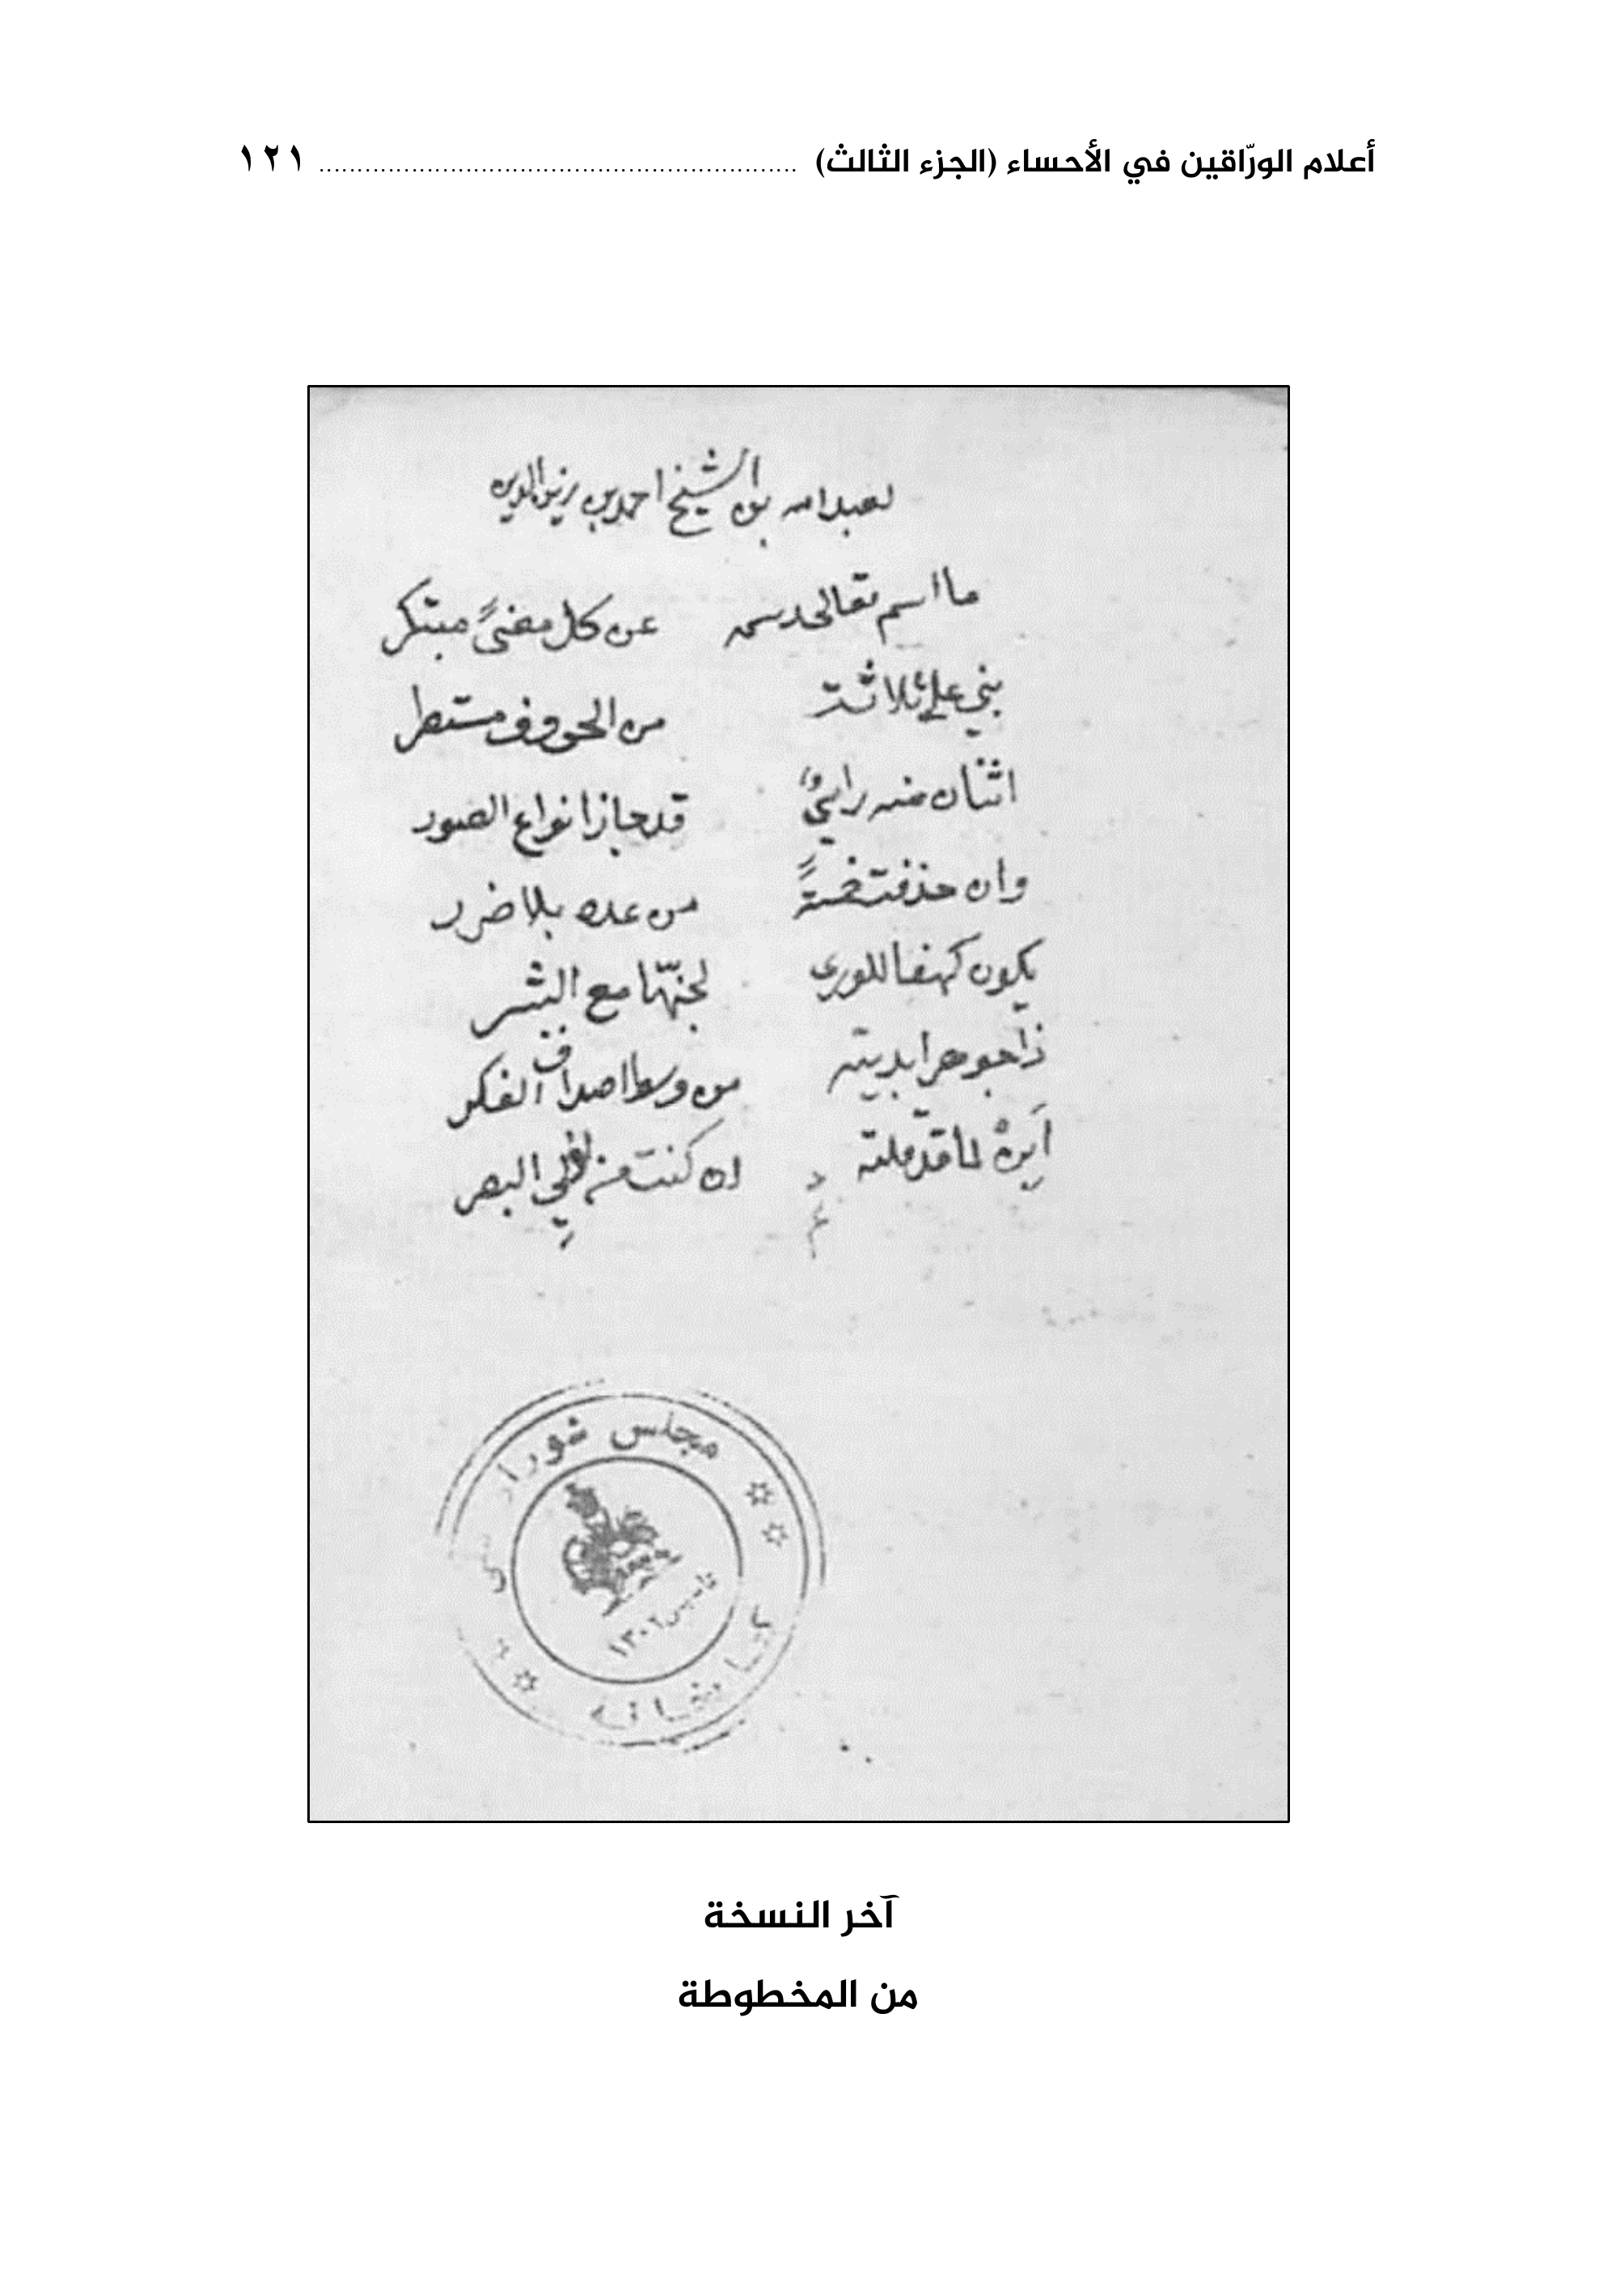 أعلام الورّاقين في الأحساء (الجزء الثالث) ............................................................... ١٢١
لعبدالله بن الشيخ احمد بن زين الدين
ما اسم تعالى رسمه عن كل معنىً مبتكر
بني على ثلاثة من الحروف مستطر
اثنان منه رابيٌ قد حاز انواع الصور
وان حذفت خمسةً من عده بلا ضرر
يكون كهفا للورى لجنّها مع البشر
ذا جوهر ابديته من وسط اصداف الفكر
اَبِنْهُ لما قد قلته ان كنت من اولي البصر
مجلس شوراى
كتابخانه
تاسيس ١٣٠٢
آخر النسخة
من المخطوطة